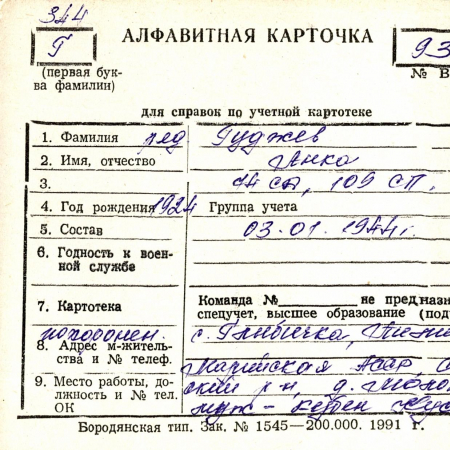 344
Г
АЛФАВИТНАЯ КАРТОЧКА
93
(первая бук-
ва фамилии)
№ В
для справок по учетной картотеке
1. Фамилия ряд Гуджев
2. Имя, отчество Янко
3. 74 сд, 109 СП.
4. Год рождения 1924 Группа учета
5. Состав 03.01.1944г.
6. Годность к воен-
ной службе
7. Картотека
Команда № не предназн
спецучет, высшее образование (под
похоронен. с.
8. Адрес м-житель-
ства и № телеф.
Марийская АССР,
9. Место работы, до-
лжность и № тел.
ОК
ский р-н, д.
муж -
Бородянская тип. Зак. № 1545—200.000. 1991 г.